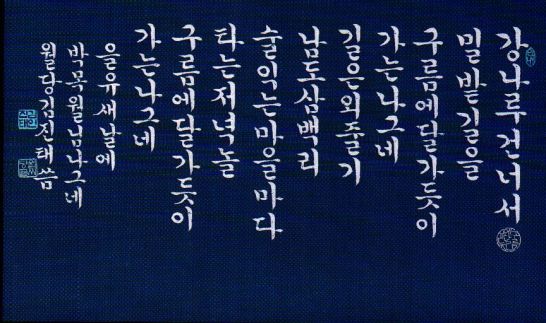 강나루건너서
밀밭길을
구름에달가듯이
가는나그네
길은외줄기
남도삼백리
술익는마을마다
타는저녁놀
구름에달가듯이
가는나그네
을유새날에
박목월님나그네
월당김진태씀